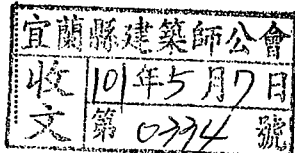 宜蘭縣建築師公會
收文
101年5月7日
第0334號